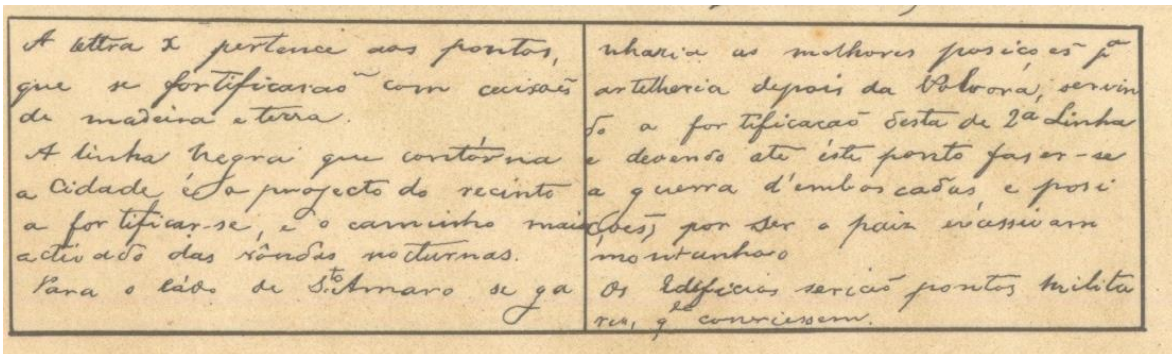 A lettra X pertence aos pontos,
que se fortificaraõ com caixaẽs
de madeira e terra.
A linha Negra que contórna
a Cidade é o projecto do recinto
a fortificar-se, e o caminho mais
activado das rôndas nocturnas.
Para o lado de Sto Amaro se ga
nharia as melhores posicoẽs pa
artelheria depois da, servin
do a fortificacaõ desta de 2a Linha
e devendo até éste ponto faser-se
a guerra d'emboscadas e posi
coẽs, por ser o paiz excessivam
montanhoso
Os Edeficios seriaõ pontos milita
res, qe conviessem.